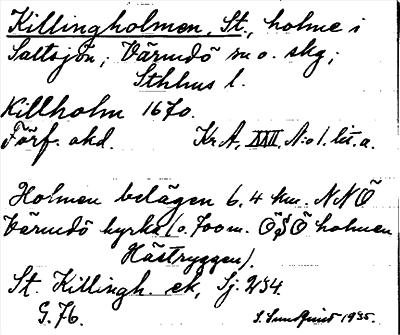 Killingholmen, St., holme i
Saltsjön; Värmdö sn o. skg;
Sthlms l.
Killholm 1670.
Förf. okd. Kr A, XXVI. A:o 1. lit. a.
Holmen belägen 6,4 km. NNÖ
Värmdö kyrka (o. 700 m. ÖSÖ holmen
Hästryggen).
St. Killingh. ek,
G. 76. S. Sundquist 1935.